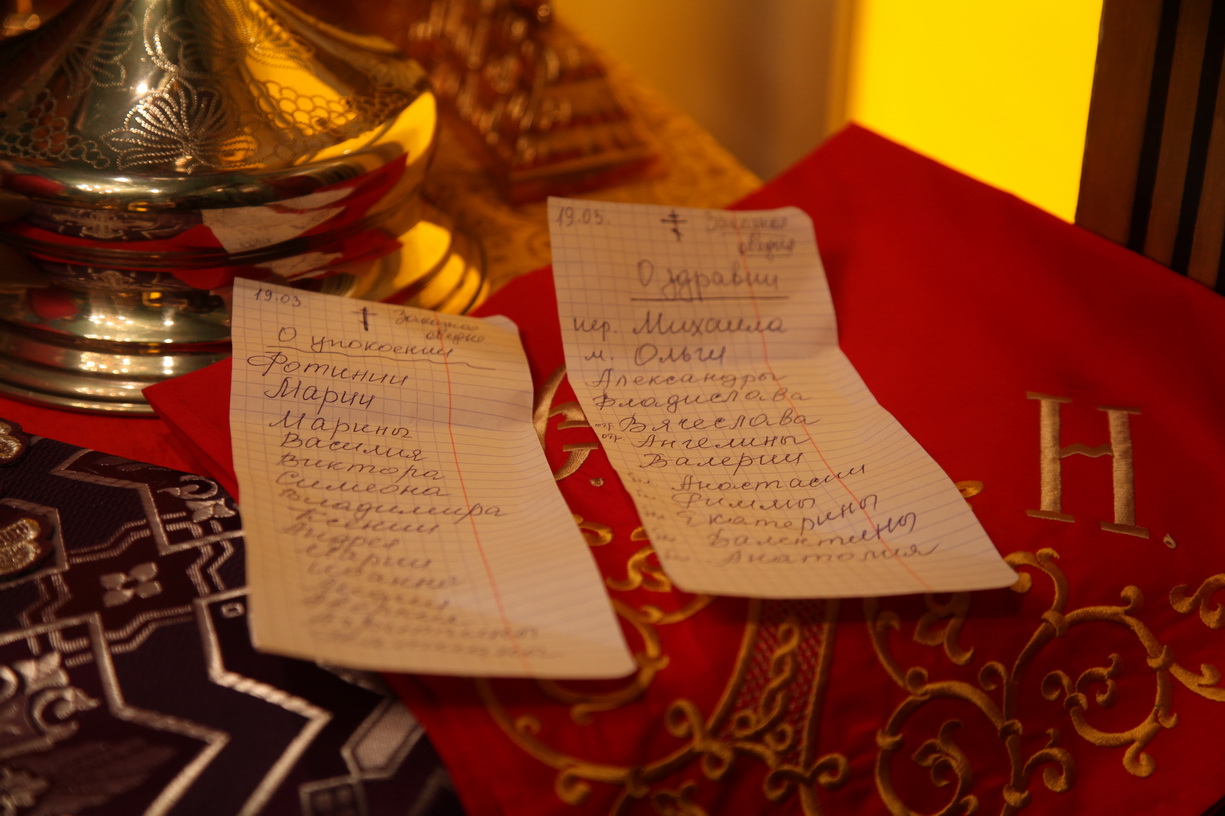 19.03
Заказная
обедня
О упокоении
Фотинии
Марии
Марины
Василия
Виктора
Симеона
Владимира
Ксении
Андрея
Марии
19.03.
Заказная
обедня
О здравии
иер. Михаила
м. Ольги
Александры
Владислава
отр Вячеслава
отр Ангелины
Валерии
Анастасии
Риммы
Екатерины
Валентины
Анатолия
Н.